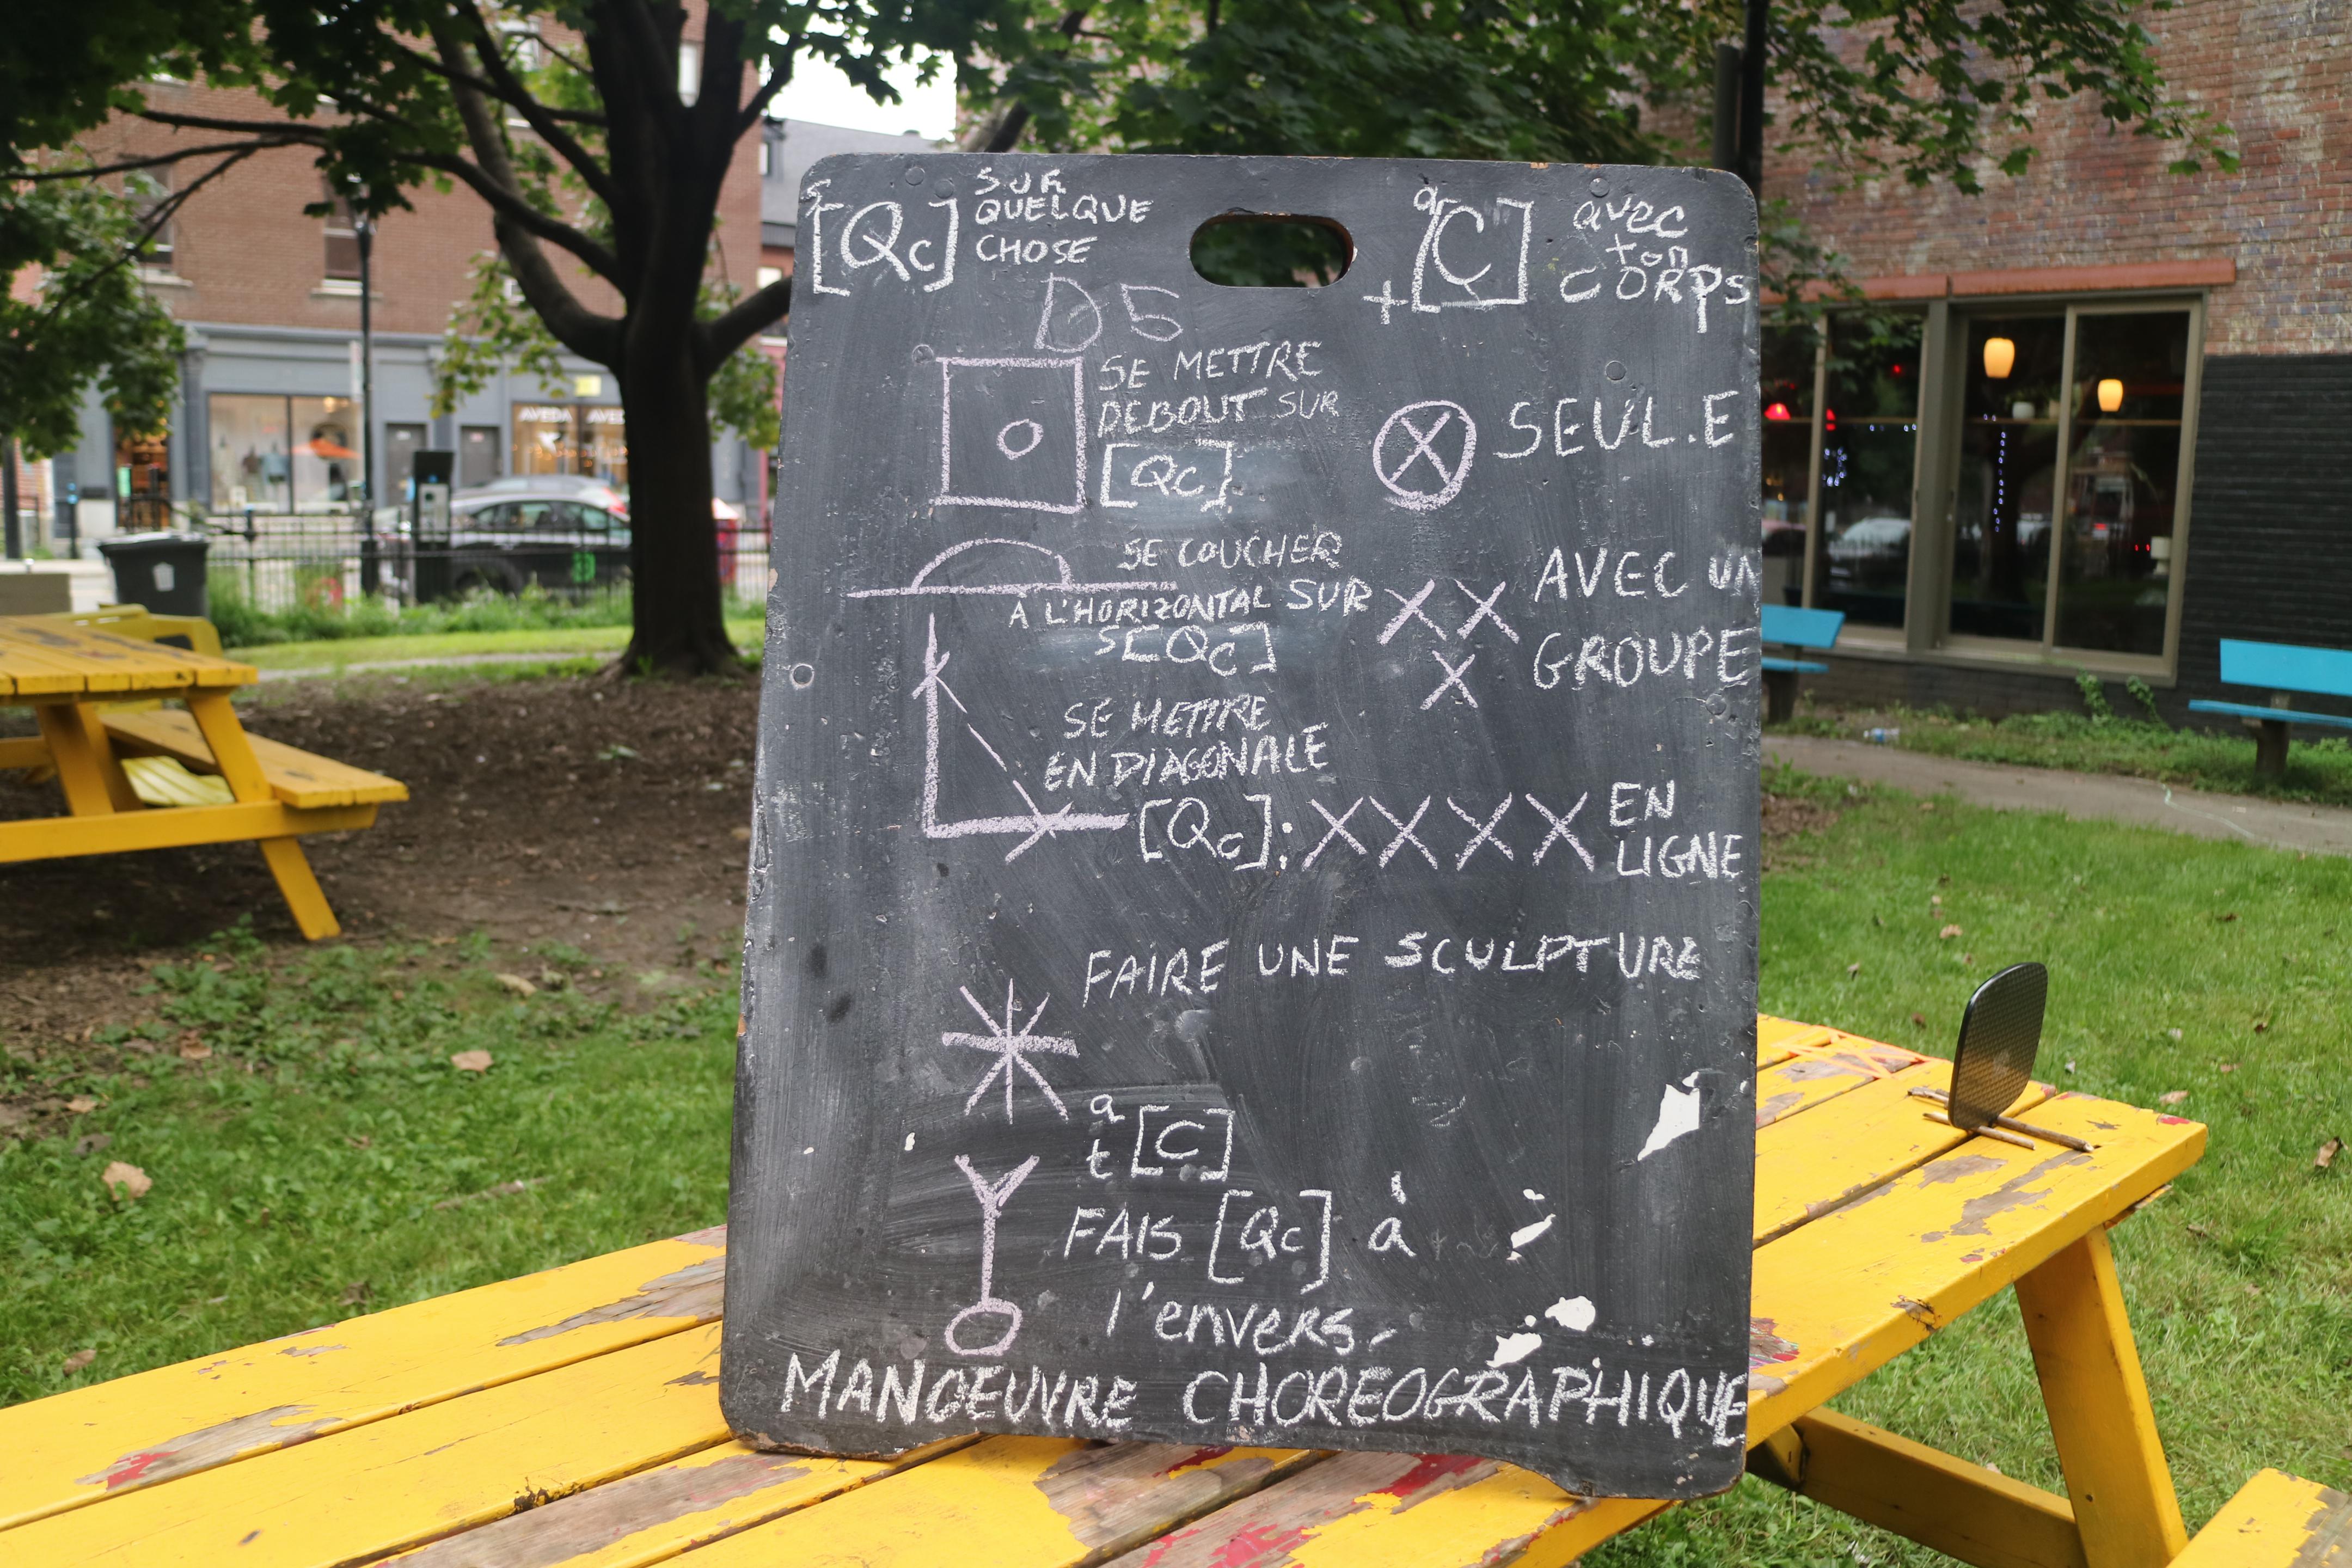 s[Qc] SUR
QUELQUE
CHOSE
+ a[C] avec
ton
CORPS
D5
SE METTRE
DEBOUT SUR
[Qc]
SEUL.E
SE COUCHER
A L'HORIZONTAL SUR
s[Qc]
XX AVEC UN
X GROUPE
SE METTRE
EN DIAGONALE
[Qc];
XXXX EN
LIGNE
FAIRE UNE SCULPTURE
a
t [C]
FAIS [Qc] à
l'envers.
MANOEUVRE CHOREOGRAPHIQUE
AVEDA AVED